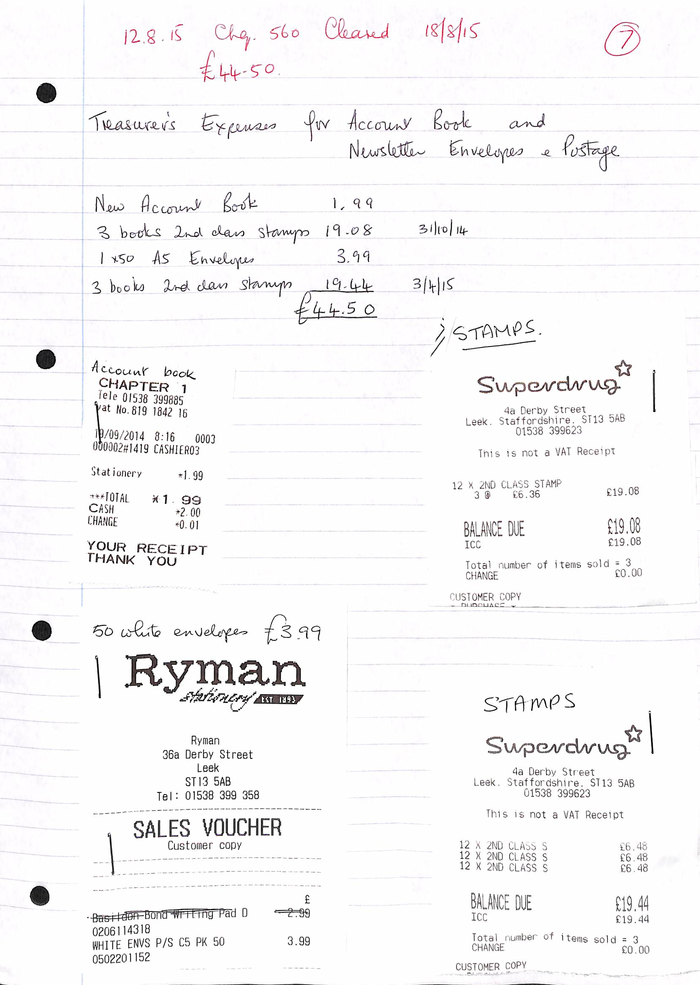 12.8.15 Chq. 560 Cleared 18/8/15
7
£44-50.
Treasurer's Expenses for Account Book and
Newsletter Envelopes & Postage
New Account Book 1.99
3 books 2nd class stamps 19.08 31/10/14
1 x50 A5 Envelopes 3.99
3 books 2nd class stamps 19.44 3/4/15
£44.50
STAMPS.
Account book
CHAPTER 1
Tele 01538 399885
Vat No.819 1842 16
19/09/2014 8:16 0003
000002#1419 CASHIER03
Stationery *1.99
***TOTAL *1.99
CASH *2.00
CHANGE *0.01
YOUR RECEIPT
THANK YOU
Superdrug
4a Derby Street
Leek. Staffordshire. ST13 5AB
01538 399623
This is not a VAT Receipt
12 X 2ND CLASS STAMP
3 @ £6.36 £19.08
BALANCE DUE £19.08
ICC £19.08
Total number of items sold = 3
CHANGE £0.00
CUSTOMER COPY
50 white envelopes £3.99
Ryman
stationery EST 1893
Ryman
36a Derby Street
Leek
ST13 5AB
Tel: 01538 399 358
SALES VOUCHER
Customer copy
£
Basildon Bond Writing Pad D 2.99
0206114318
WHITE ENVS P/S C5 PK 50 3.99
0502201152
STAMPS
Superdrug
4a Derby Street
Leek. Staffordshire. ST13 5AB
01538 399623
This is not a VAT Receipt
12 X 2ND CLASS S £6.48
12 X 2ND CLASS S £6.48
12 X 2ND CLASS S £6.48
BALANCE DUE £19.44
ICC £19.44
Total number of items sold = 3
CHANGE £0.00
CUSTOMER COPY